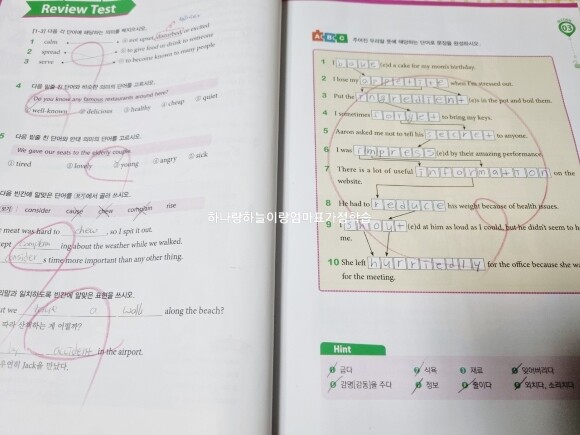 Review Test
[1-3] 다음 각 단어에 해당하는 의미를 찾아쓰시오.
1 calm
2 spread
3 serve
not upset, disturbed or excited
to give food or drink to someone
to become known to many people
4 다음 밑줄 친 단어와 비슷한 의미의 단어를 고르시오.
Do you know any famous restaurants around here?
① well-known ② delicious ③ healthy ④ cheap ⑤ quiet
5 다음 밑줄 친 단어와 반대 의미의 단어를 고르시오.
We gave our seats to the elderly couple.
① tired ② lovely ③ young ④ angry ⑤ sick
다음 빈칸에 알맞은 단어를 보기에서 골라 쓰시오.
보기 consider cause chew complain rise
meat was hard to chew, so I spit it out.
complain ing about the weather while we walked.
consider s time more important than any other thing.
빈칸에 알맞은 표현을 쓰시오.
we a walk along the beach?
하는 게 어떨까?
accident in the airport.
우연히 Jack을 만났다.
하나랑하늘이랑
A B C G 주어진 우리말 뜻에 해당하는 단어로 문장을 완성하시오.
03
1 I (e)d a cake for my mom's birthday.
2 I lose my appetite when I'm stressed out.
3 Put the ingredient (e)s in the pot and boil them.
4 I sometimes forget to bring my keys.
5 Aaron asked me not to tell his secret to anyone.
6 I was impress (e)d by their amazing performance.
7 There is a lot of useful information on the
website.
8 He had to reduce his weight because of health issues.
9 I shout (e)d at him as loud as I could, but he didn't seem to h
me.
10 She left hurriedly for the office because she wa
for the meeting.
Hint
굽다 식욕 재료 잊어버리다
감명[감동]을 주다 정보 줄이다 외치다, 소리치다